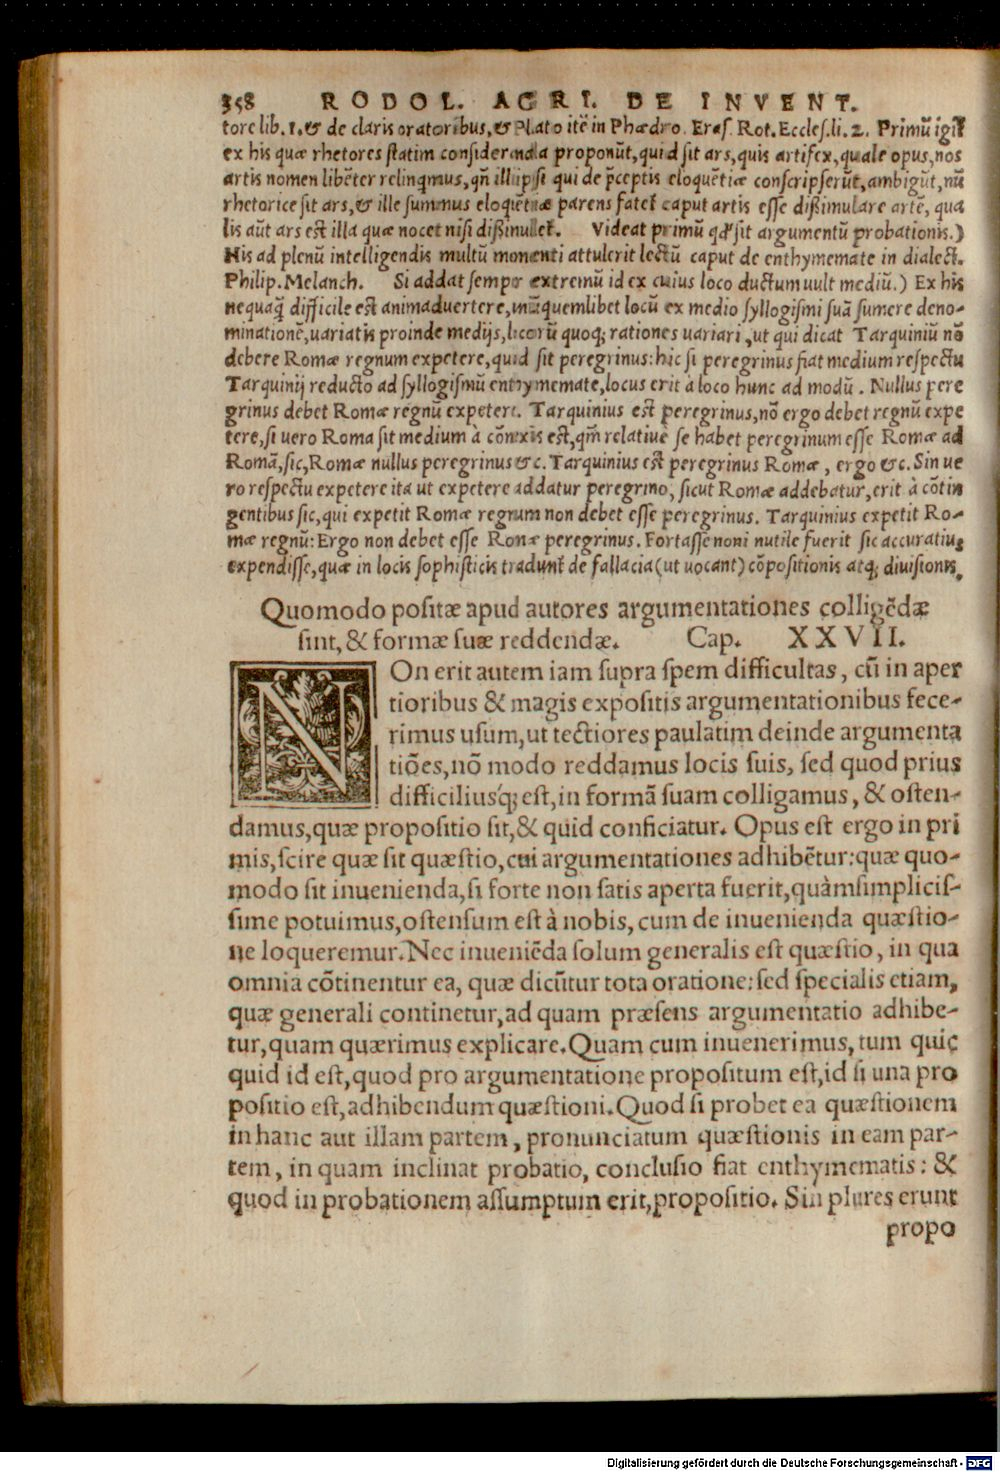 358 RODOL. AGRI. DE INVENT.
tore lib. 1. & de claris oratoribus, & Plato itē in Phædro. Eras. Rot. Eccles. li. 2. Primū igit̄
ex his quæ rhetores statim consideranda proponūt, quid sit ars, quis artifex, quale opus, nos
artis nomen libēter relinqmus, qn̄ illi ipsi qui de p̄ceptis eloquētiæ conscripserūt, ambigūt, nū
rhetorice sit ars, & ille summus eloquētiæ parens fatet̄ caput artis esse dißimulare artē, qua
lis aūt ars est illa quæ nocet nisi dißimulet̄. Videat primū qđ sit argumentū probationis.)
His ad plenū intelligendis multū momenti attulerit lectū caput de enthymemate in dialect.
Philip. Melanch. Si addat semper extremū id ex cuius loco ductum uult mediū.) Ex his
nequaq̄ difficile est animaduertere, unūquemlibet locū ex medio syllogismi suā sumere deno-
minationē, uariatis proinde medijs, locorū quoq; rationes uariari, ut qui dicat Tarquiniū nō
debere Romæ regnum expetere, quòd sit peregrinus: hic si peregrinus fiat medium respectu
Tarquinij reducto ad syllogismū enthymemate, locus erit à loco hunc ad modū. Nullus pere
grinus debet Romæ regnū expetere. Tarquinius est peregrinus, nō ergo debet regnū expe
tere, si uero Roma sit medium à cōnexis est, qm̄ relatiue se habet peregrinum esse Romæ ad
Romā, sic, Romæ nullus peregrinus &c. Tarquinius est peregrinus Romæ, ergo &c. Sin ue
ro respectu expetere ita ut expetere addatur peregrino, sicut Romæ addebatur, erit à cōtin
gentibus sic, qui expetit Romæ regnum non debet esse peregrinus. Tarquinius expetit Ro-
mæ regnū: Ergo non debet esse Romæ peregrinus. Fortasse non inutile fuerit sic accuratius
expendisse, quæ in locis sophisticis tradunt̄ de fallacia (ut uocant) cōpositionis atq; diuisionis.
Quomodo positæ apud autores argumentationes colligēdæ
sint, & formæ suæ reddendæ. Cap. XXVII.
NOn erit autem iam supra spem difficultas, cū in aper
tioribus & magis expositis argumentationibus fece-
rimus usum, ut tectiores paulatim deinde argumenta
tiōes, nō modo reddamus locis suis, sed quod prius
difficiliusq́; est, in formā suam colligamus, & osten-
damus, quæ propositio sit, & quid conficiatur. Opus est ergo in pri
mis, scire quæ sit quæstio, cui argumentationes adhibētur: quæ quo-
modo sit inuenienda, si forte non satis aperta fuerit, quàm simplicis-
sime potuimus, ostensum est à nobis, cum de inuenienda quæstio-
ne loqueremur. Nec inueniēda solum generalis est quæstio, in qua
omnia cōtinentur ea, quæ dicūtur tota oratione: sed specialis etiam,
quæ generali continetur, ad quam præsens argumentatio adhibe-
tur, quam quærimus explicare. Quam cum inuenerimus, tum quic
quid id est, quod pro argumentatione propositum est, id si una pro
positio est, adhibendum quæstioni. Quod si probet ea quæstionem
in hanc aut illam partem, pronunciatum quæstionis in eam par-
tem, in quam inclinat probatio, conclusio fiat enthymematis: &
quod in probationem assumptum erit, propositio. Sin plures erunt
propo
Digitalisierung gefördert durch die Deutsche Forschungsgemeinschaft - DFG